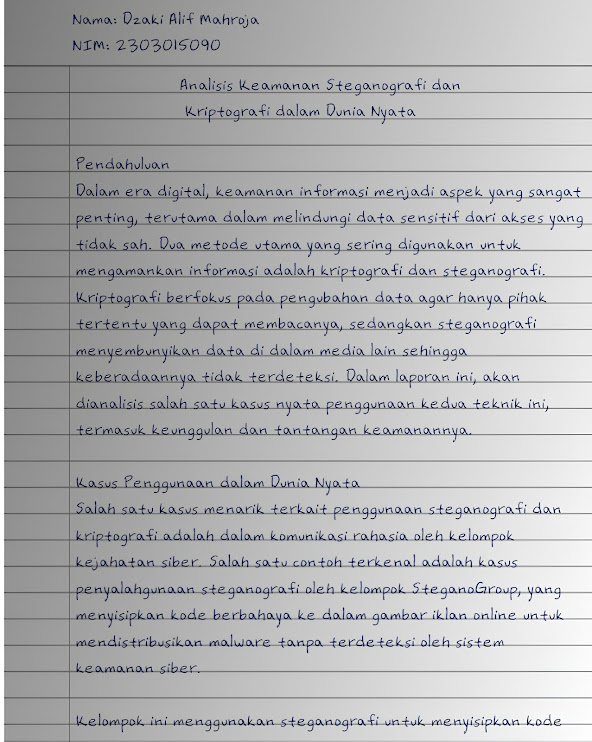 Nama: Dzaki Alif Mahroja
NIM: 2303015090
Analisis Keamanan Steganografi dan
Kriptografi dalam Dunia Nyata
Pendahuluan
Dalam era digital, keamanan informasi menjadi aspek yang sangat
penting, terutama dalam melindungi data sensitif dari akses yang
tidak sah. Dua metode utama yang sering digunakan untuk
mengamankan informasi adalah kriptografi dan steganografi.
Kriptografi berfokus pada pengubahan data agar hanya pihak
tertentu yang dapat membacanya, sedangkan steganografi
menyembunyikan data di dalam media lain sehingga
keberadaannya tidak terdeteksi. Dalam laporan ini, akan
dianalisis salah satu kasus nyata penggunaan kedua teknik ini,
termasuk keunggulan dan tantangan keamanannya.
Kasus Penggunaan dalam Dunia Nyata
Salah satu kasus menarik terkait penggunaan steganografi dan
kriptografi adalah dalam komunikasi rahasia oleh kelompok
kejahatan siber. Salah satu contoh terkenal adalah kasus
penyalahgunaan steganografi oleh kelompok SteganoGroup, yang
menyisipkan kode berbahaya ke dalam gambar iklan online untuk
mendistribusikan malware tanpa terdeteksi oleh sistem
keamanan siber.
Kelompok ini menggunakan steganografi untuk menyisipkan kode